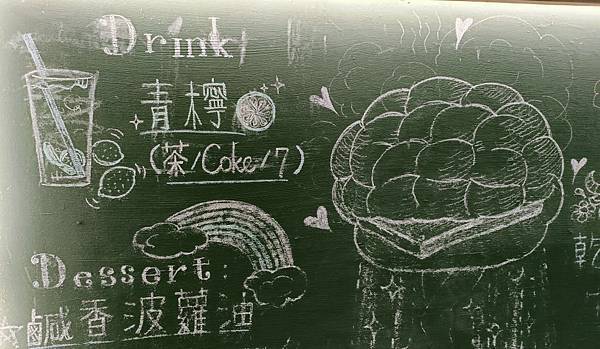 Drink
青檸
(茶/Coke/7)
Dessert:
☆鹹香波蘿油
乾